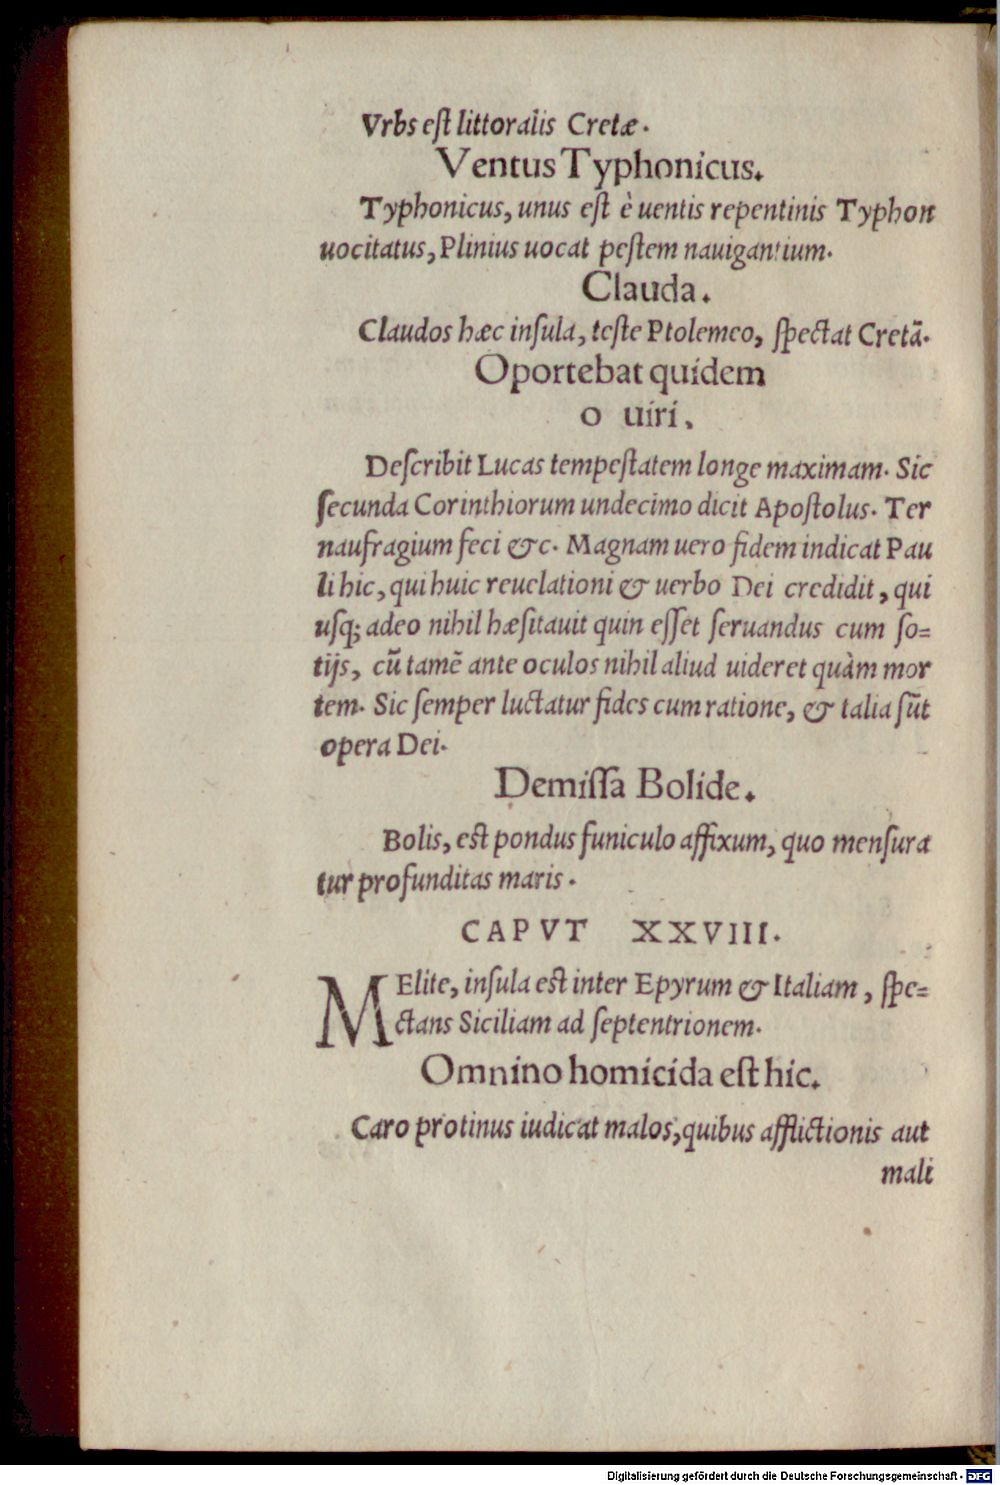 Vrbs eſt littoralis Cretæ.
Ventus Typhonicus.
Typhonicus, unus eſt è uentis repentinis Typhon
uocitatus, Plinius uocat peſtem nauigantium.
Clauda.
Claudos hæc inſula, teſte Ptolemeo, ſpectat Cretã.
Oportebat quidem
o uiri.
Deſcribit Lucas tempeſtatem longe maximam. Sic
ſecunda Corinthiorum undecimo dicit Apoſtolus. Ter
naufragium feci &c. Magnam uero fidem indicat Pau
li hic, qui huic reuelationi & uerbo Dei credidit, qui
uſq; adeo nihil hæſitauit quin eſſet ſeruandus cum ſo=
tijs, cũ tamẽ ante oculos nihil aliud uideret quàm mor
tem. Sic ſemper luctatur fides cum ratione, & talia ſũt
opera Dei.
Demiſſa Bolide.
Bolis, eſt pondus funiculo affixum, quo menſura
tur profunditas maris.
CAPVT XXVIII.
MElite, inſula eſt inter Epyrum & Italiam, ſpe=
ctans Siciliam ad ſeptentrionem.
Omnino homicida eſt hic.
Caro protinus iudicat malos, quibus afflictionis aut
mali
Digitalisierung gefördert durch die Deutsche Forschungsgemeinschaft - DFG